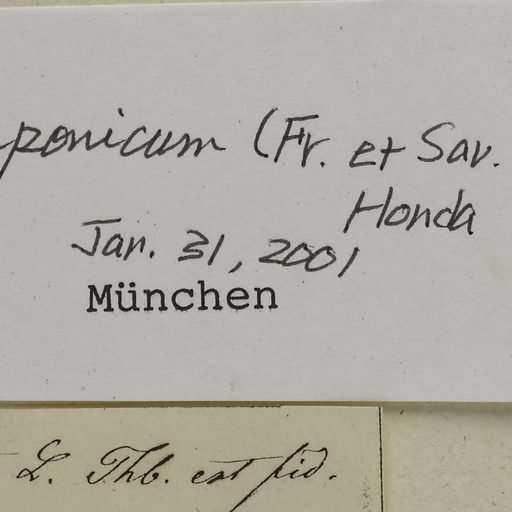 ponicum (Fr. et Sav.
Honda
Jan. 31, 2001
München
L. Thb. est fid.